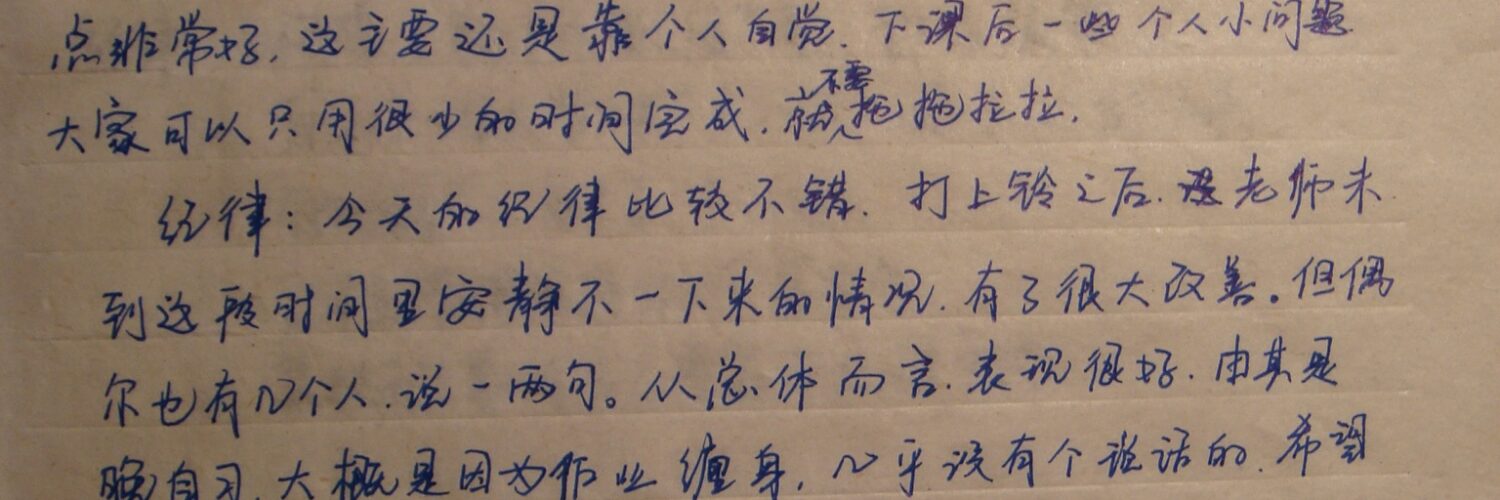 点非常好,这主要还是靠个人自觉.下课后一些个人小问题
大家可以只用很少的时间完成.不要拖拖拉拉.
纪律:今天的纪律比较不错.打上铃之后.老师未
到这段时间里安静不一下来的情况.有了很大改善。但偶
尔也有几个人.说一两句。从总体而言.表现很好.由其是
晚自习.大概是因为作业缠身.几乎没有个说话的.希望